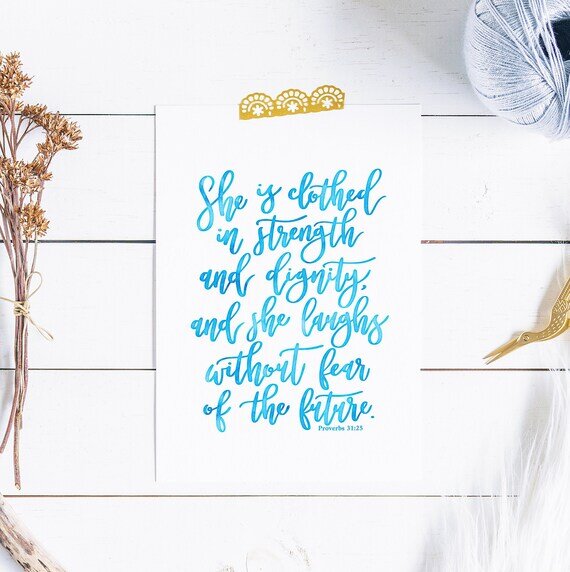 She is clothed
in strength
and dignity,
and she laughs
without fear
of the future.
Proverbs 31:25